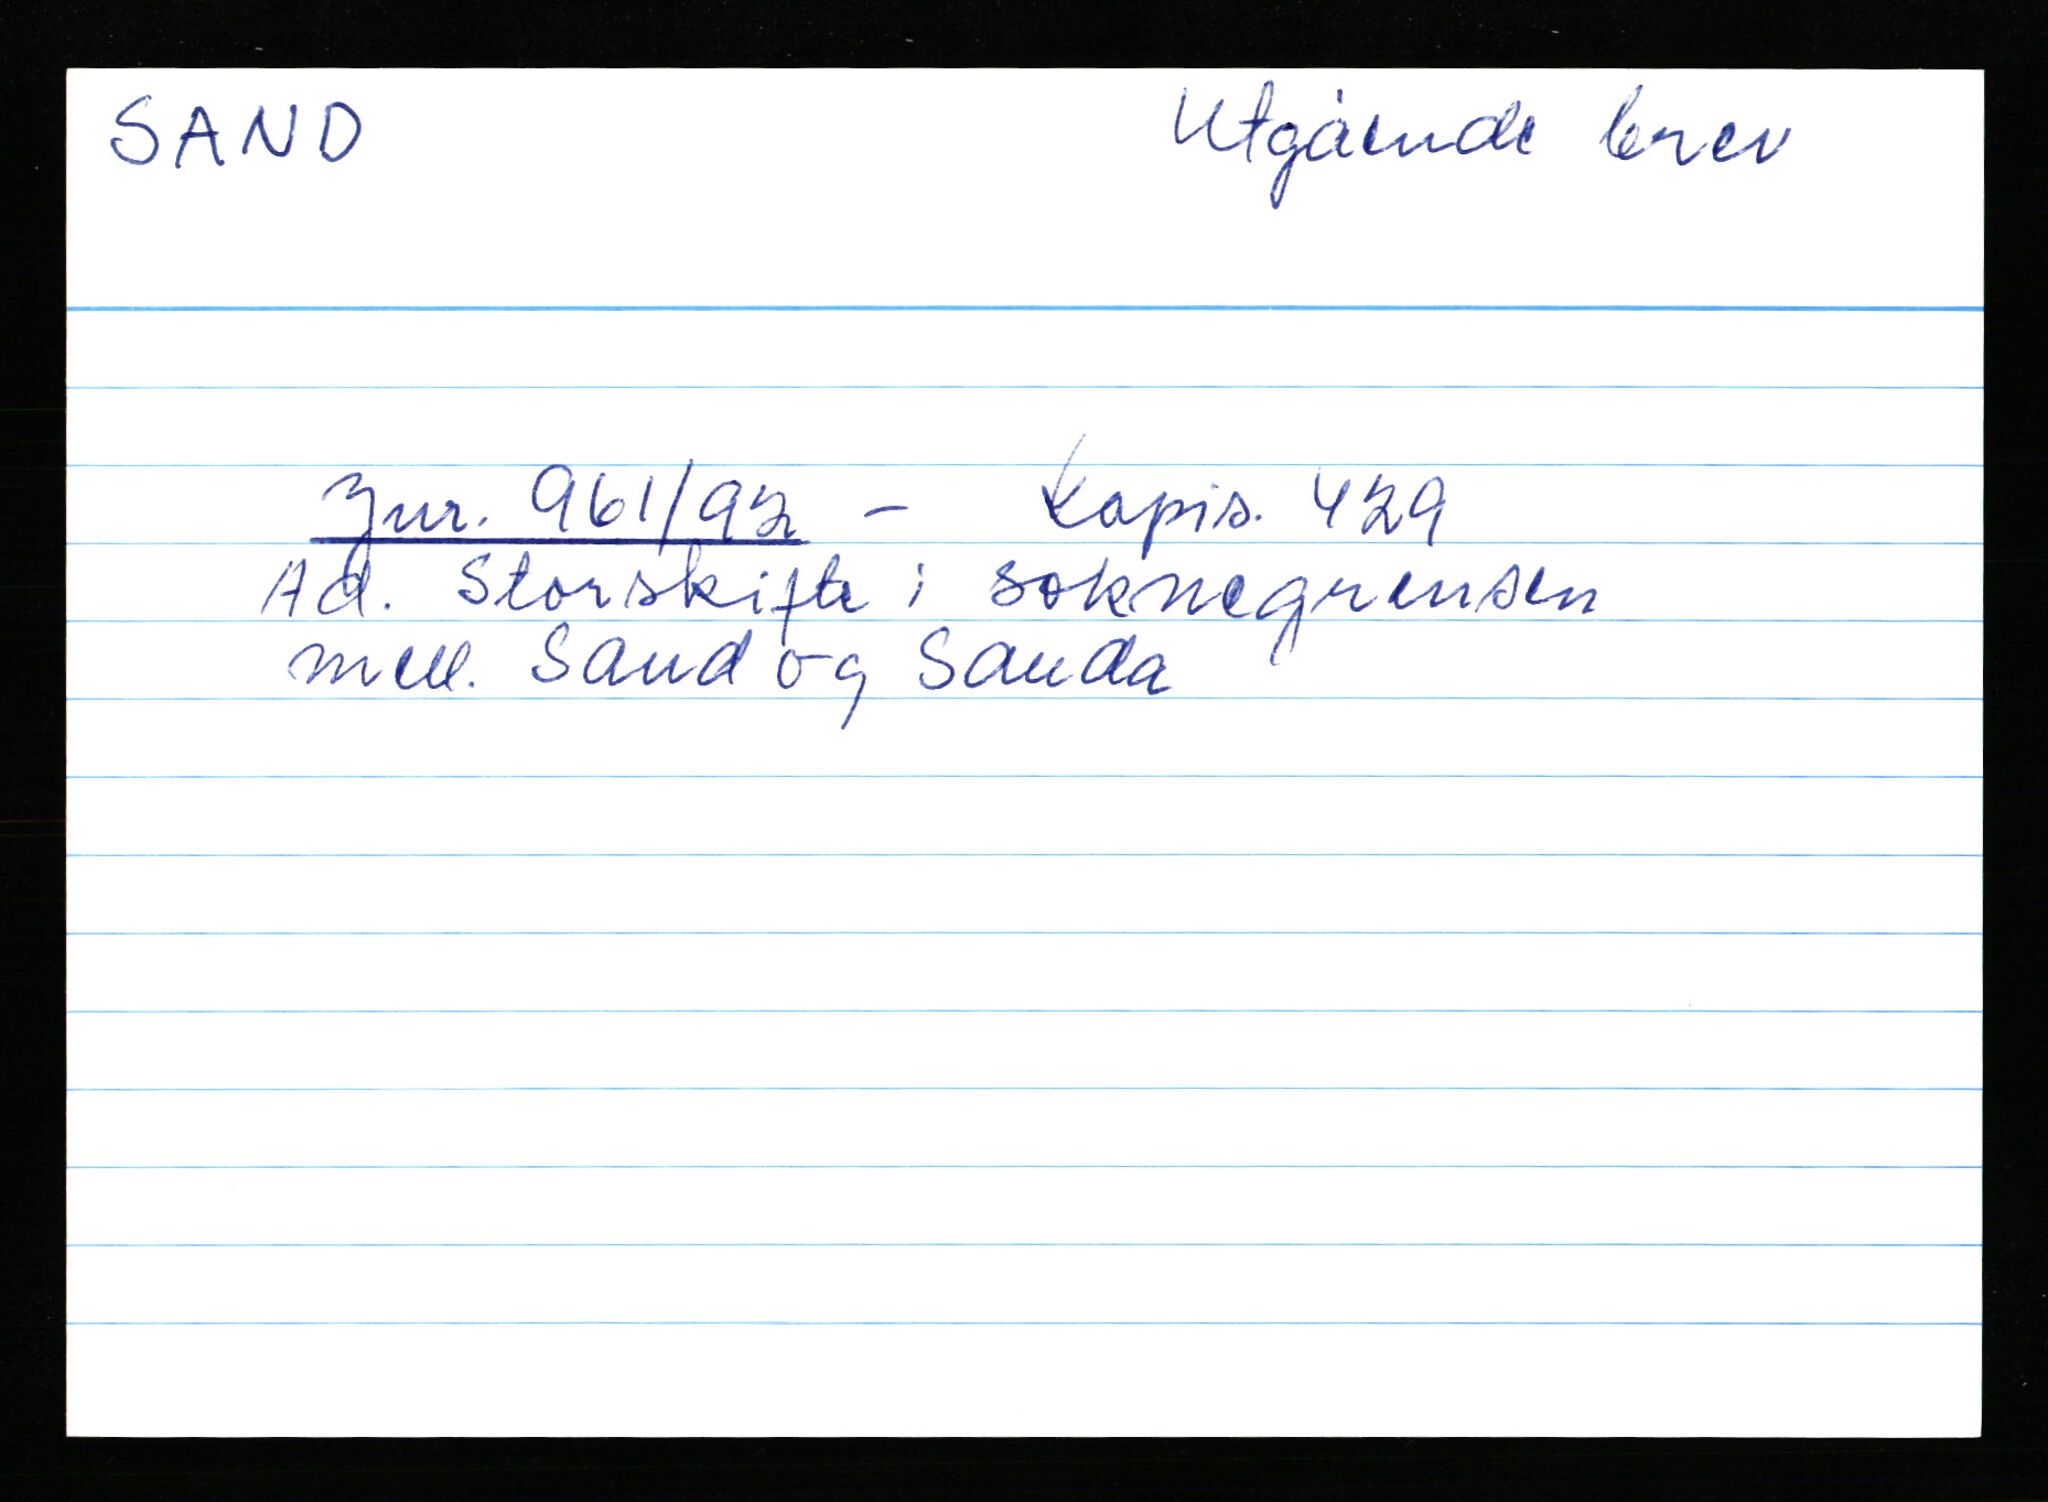 SAND
Utgående brev
Jnr. 961/92 - Kopis. 429
Ad. Storskifte i soknegrensen
mell. Sand og Sauda